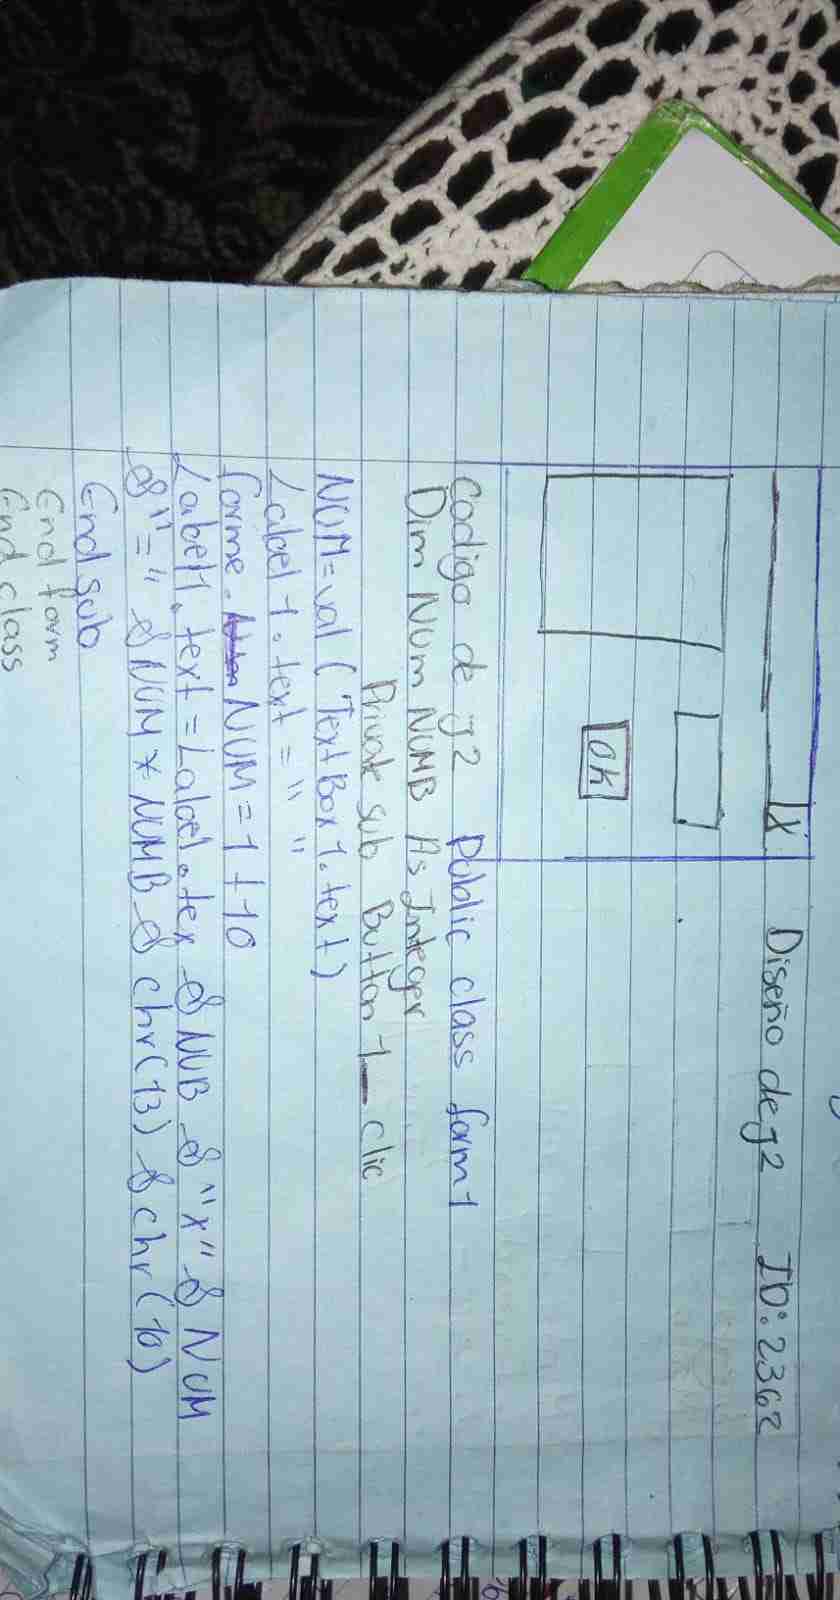 X Diseño de j2 ID: 2362
OK
Codigo de j2 Public class form1
Dim NUM NUMB As Integer
Private sub Button 1_clic
NUM = val (TextBox1.text)
Label 1.text = " "
forme. NUM = 1 t 10
Label1.text = Label.tex & NUB & "x" & NUM
& "=" & NUM * NUMB & chr(13) & chr(10)
End sub
End form
End class